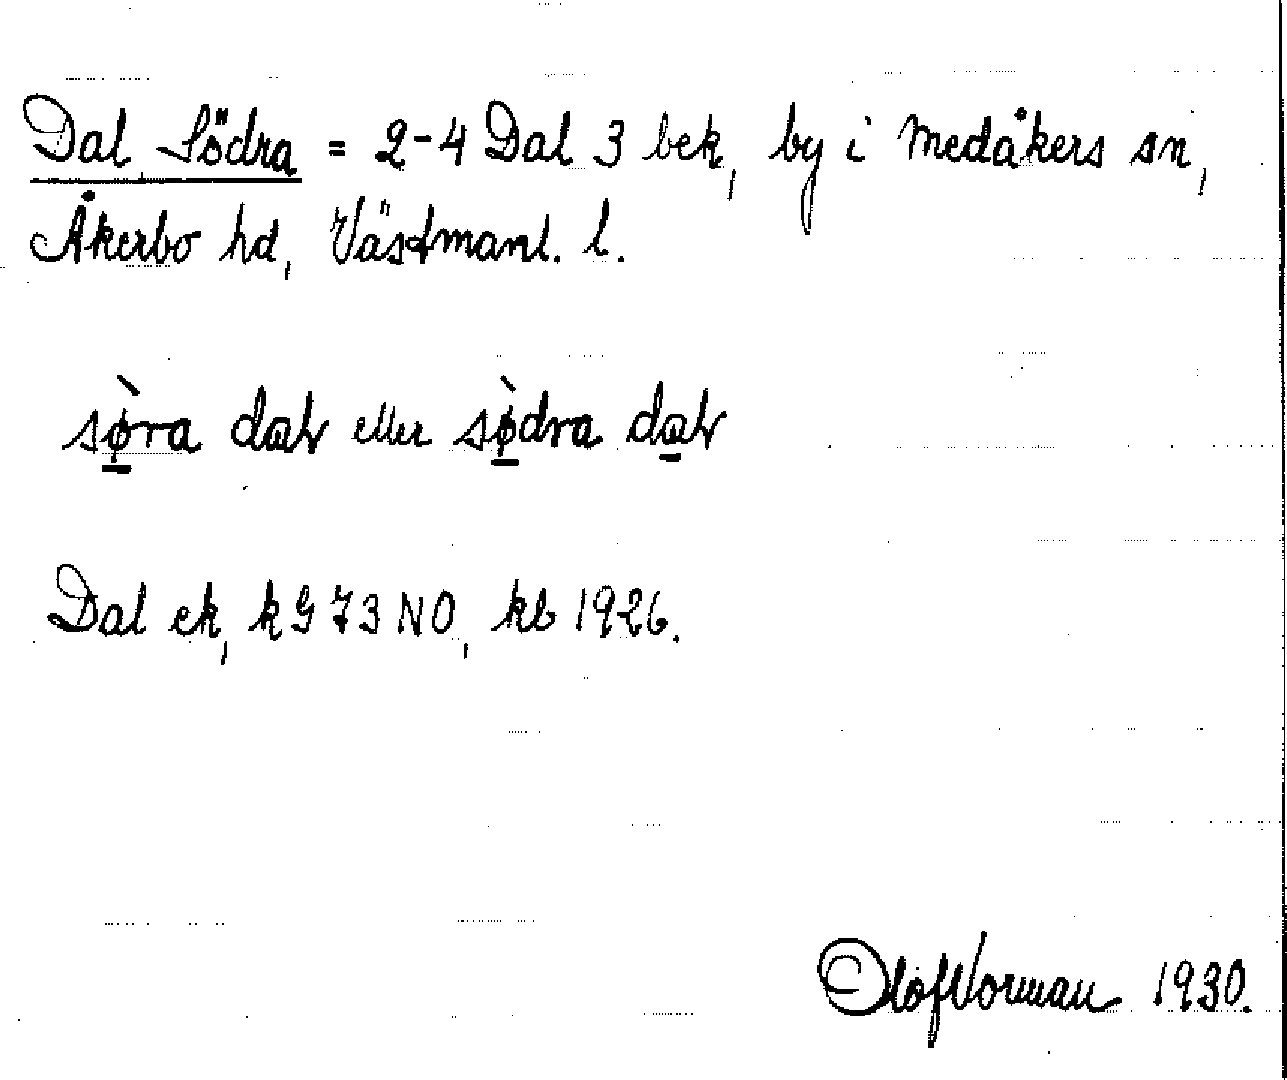 Dal Södra = 2-4 Dal 3 bek, by i Medåkers sn,
Åkerbo hd, Västmanl. l.
sø̀ra dal eller sø̀dra dal
Dal ek, k G 73 NO, kb 1926.
Olof Norman 1930.